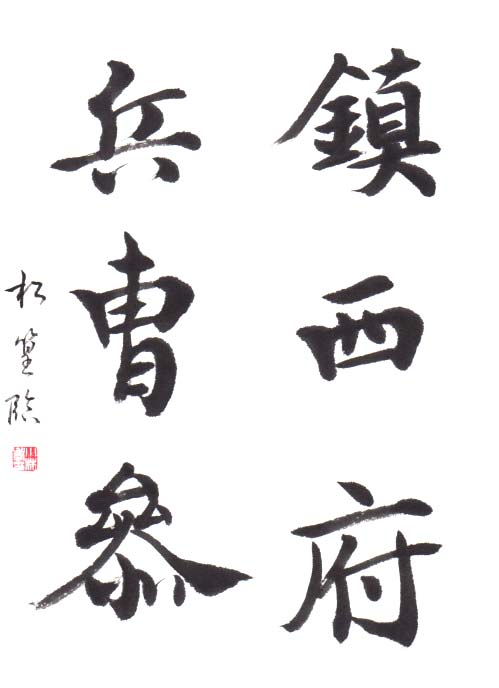 鎮西府
兵曹参
松篁臨